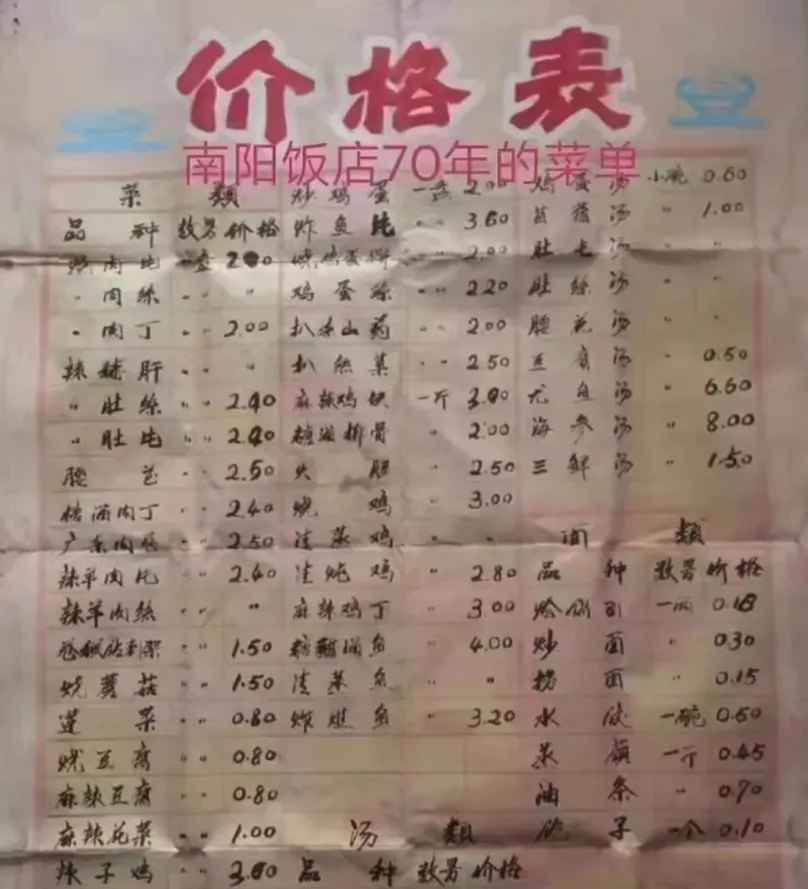 价格表
南阳饭店70年的菜单
菜 类
品 种 数另 价格
烧肉片 一盘 2.00
〃肉丝 〃〃 〃
〃肉丁 〃〃 2.00
辣猪肝 〃〃 〃
〃肚丝 〃〃 2.40
〃肚片 〃〃 2.40
腰 花 〃〃 2.50
糖溜肉丁 〃〃 2.40
广东肉 〃〃 2.50
辣羊肉片 〃〃 2.40
辣羊肉丝 〃〃 〃
〃〃 1.50
烧蘑菇 〃〃 1.50
莲 菜 〃〃 0.80
烧豆腐 〃〃 0.80
麻辣豆腐 〃〃 0.80
麻辣花菜 〃〃 1.00
辣子鸡 〃〃 3.00
炒鸡蛋 一盘 2.00
炸鱼片 〃〃 3.60
烧鸡蛋饼 〃〃 2.00
鸡蛋丝 〃〃 2.20
扒山药 〃〃 2.00
扒素菜 〃〃 2.50
麻辣鸡块 一斤 3.00
糖溜排骨 〃 2.00
〃 2.50
烧 鸡 〃 3.00
清蒸鸡 〃 〃
清炖鸡 〃 2.80
麻辣鸡丁 〃 3.00
糖醋溜鱼 〃 4.00
清蒸鱼 〃 〃
炸焦鱼 〃 3.20
汤 类
品 种 数另 价格
鸡蛋汤 小碗 0.60
汤 〃 1.00
肚片汤 〃 〃
肚丝汤 〃 〃
腰花汤 〃 〃
豆腐汤 〃 0.50
尤鱼汤 〃 6.60
海参汤 〃 8.00
三鲜汤 〃 1.50
面 类
品 种 数另 价格
烩锅 一两 0.18
炒 面 〃 0.30
捞 面 〃 0.15
水 饺 一碗 0.60
蒸 馍 一斤 0.45
油 条 〃 0.70
包 子 一个 0.10